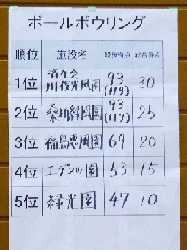 ボールボウリング
順位 施設名 競技得点 総合得点
1位 川
93 (119) 30
2位 園
93 (117) 25
3位 福島恵風園 69 20
4位 エデンの園 53 15
5位 緑光園 47 10